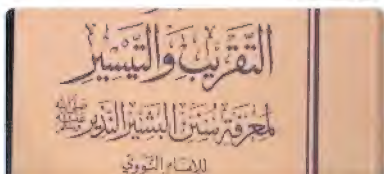 التقريب والتيسير
لمعرفة سنن البشير النذير ﷺ
للإمام النووي